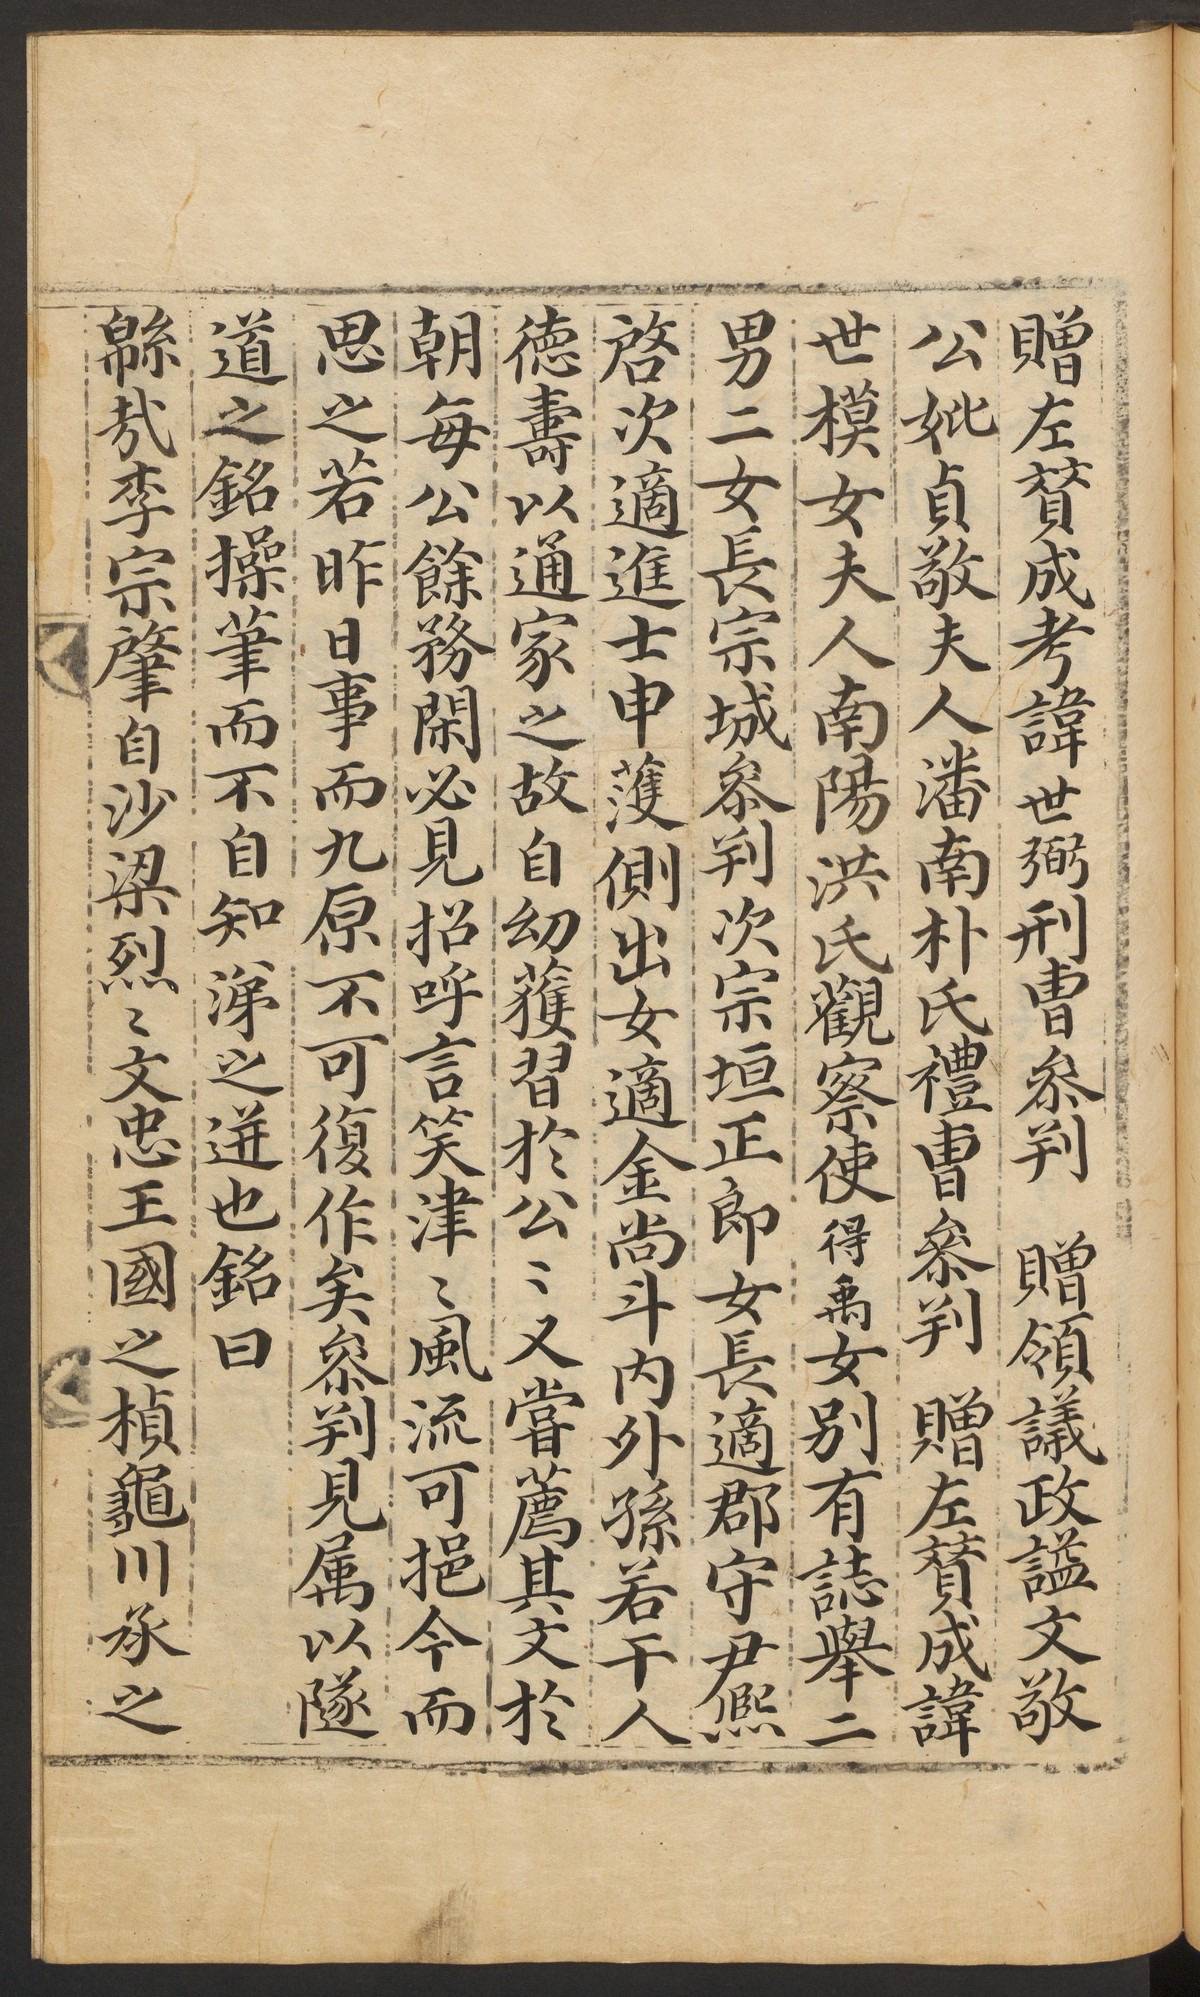 贈左賛成考諱世弼刑曺叅判　贈領議政謚文敬
公妣貞敬夫人潘南朴氏禮曺叅判　贈左賛成諱
世模女夫人南陽洪氏觀察使得禹女別有誌擧二
男二女長宗城叅判次宗垣正郎女長適郡守尹熈
啓次適進士申䕶側出女適金尚斗内外孫若干人
徳壽以通家之故自幼獲習於公〻又嘗薦其文於
朝每公餘務閑必見招呼言笑津〻風流可挹今而
思之若昨日事而九原不可復作矣叅判見属以隧
道之銘操筆而不自知涕之迸也銘曰
緜㢤李宗肇自沙梁烈〻文忠王國之楨龜川承之